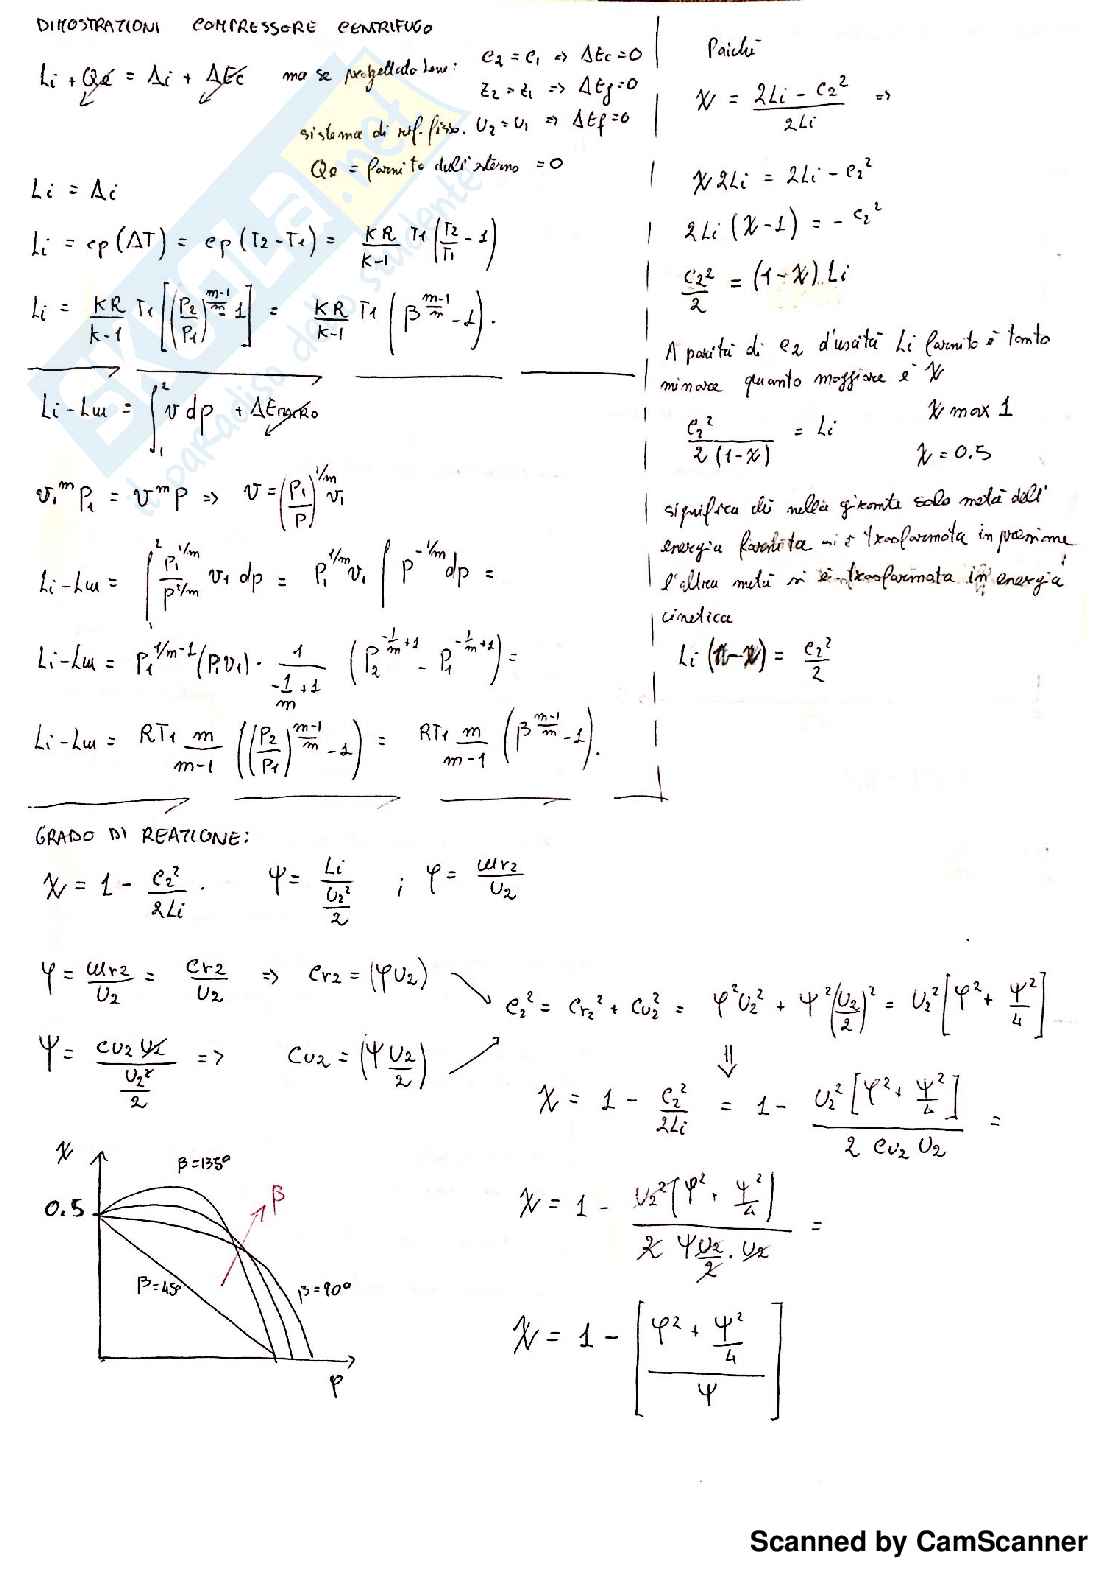 DIMOSTRAZIONI COMPRESSORE CENTRIFUGO
Li + Qe = Δi + ΔEc ma se progettato bene: c2 = c1 => ΔEc = 0
z2 = z1 => ΔEg = 0
sistema di rif. fisso. U2 = U1 => ΔEf = 0
Qe = fornito dall'esterno = 0
Li = Δi
Li = cp(ΔT) = cp(T2-T1) = KR/(K-1) T1 (T2/T1 - 1)
Li = KR/(K-1) T1 [(P2/P1)^((m-1)/m) - 1] = KR/(K-1) T1 (β^((m-1)/m) - 1).
Li - Lw = ∫₁² v dp + ΔE
v1^m P1 = v^m P => v = (P1/P)^(1/m) v1
Li - Lw = ∫₁² P1^(1/m)/P^(1/m) v1 dp = P1^(1/m) v1 ∫ P^(-1/m) dp =
Li - Lw = P1^(1/m-1) (P1v1) · 1/(-1/m+1) (P2^(-1/m+1) - P1^(-1/m+1)) =
Li - Lw = RT1 m/(m-1) ((P2/P1)^((m-1)/m) - 1) = RT1 m/(m-1) (β^((m-1)/m) - 1).
Poiché
χ = (2Li - c2²)/2Li =>
χ2Li = 2Li - c2²
2Li(χ-1) = - c2²
c2²/2 = (1-χ) Li
A parità di c2 d'uscita Li fornito è tanto
minore quanto maggiore è χ
c2²/(2(1-χ)) = Li
χ max 1
χ = 0.5
significa che nella girante solo metà dell'
energia fornita si è trasformata in pressione
l'altra metà si è trasformata in energia
cinetica
Li (1-χ) = c2²/2
GRADO DI REAZIONE:
χ = 1 - c2²/2Li . Ψ = Li/(U2²/2) ; φ = wr2/U2
φ = wr2/U2 = cr2/U2 => cr2 = (φU2)
Ψ = cu2 U2/(U2²/2) => cu2 = (Ψ U2/2)
c2² = cr2² + cu2² = φ²U2² + Ψ²(U2/2)² = U2² [φ² + Ψ²/4]
⇓
χ = 1 - c2²/2Li = 1 - U2² [φ² + Ψ²/4]/(2 cu2 U2) =
χ = 1 - U2² [φ² + Ψ²/4]/(2 Ψ U2/2 · U2) =
χ = 1 - [(φ² + Ψ²/4)/Ψ]
χ
β=135°
0.5
β
β=45°
β=90°
φ
SKUOLA.net
il paradiso dello studente
Scanned by CamScanner